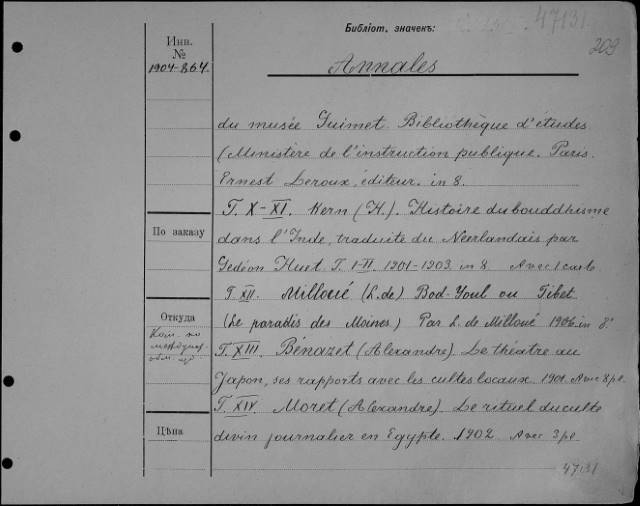 Библіот. значекъ:
47131
209
Инв.
№
1904-864.
Annales
du musée Guimet. Bibliothèque d'études
(Ministère de l'instruction publique. Paris.
Ernest Leroux, éditeur. in 8.
T. X-XI. Kern (H.). Histoire du bouddhisme
По заказу
dans l'Inde, traduite du Neerlandais par
Gédéon Huet. T. I-II. 1901-1903. in 8. Avec 1 carte
T. XII. Milloué (L. de) Bod-Youl ou Tibet
Откуда
(Le paradis des Moines) Par L. de Milloué 1906. in 8°
T. XIII. Bénazet (Alexandre). Le théatre au
Japon, ses rapports avec les cultes locaux. 1901. Avec 8 pl.
T. XIV. Moret (Alexandre). Le rituel du culte
Цѣна
divin journalier en Egypte. 1902. Avec 3 pl.
47131